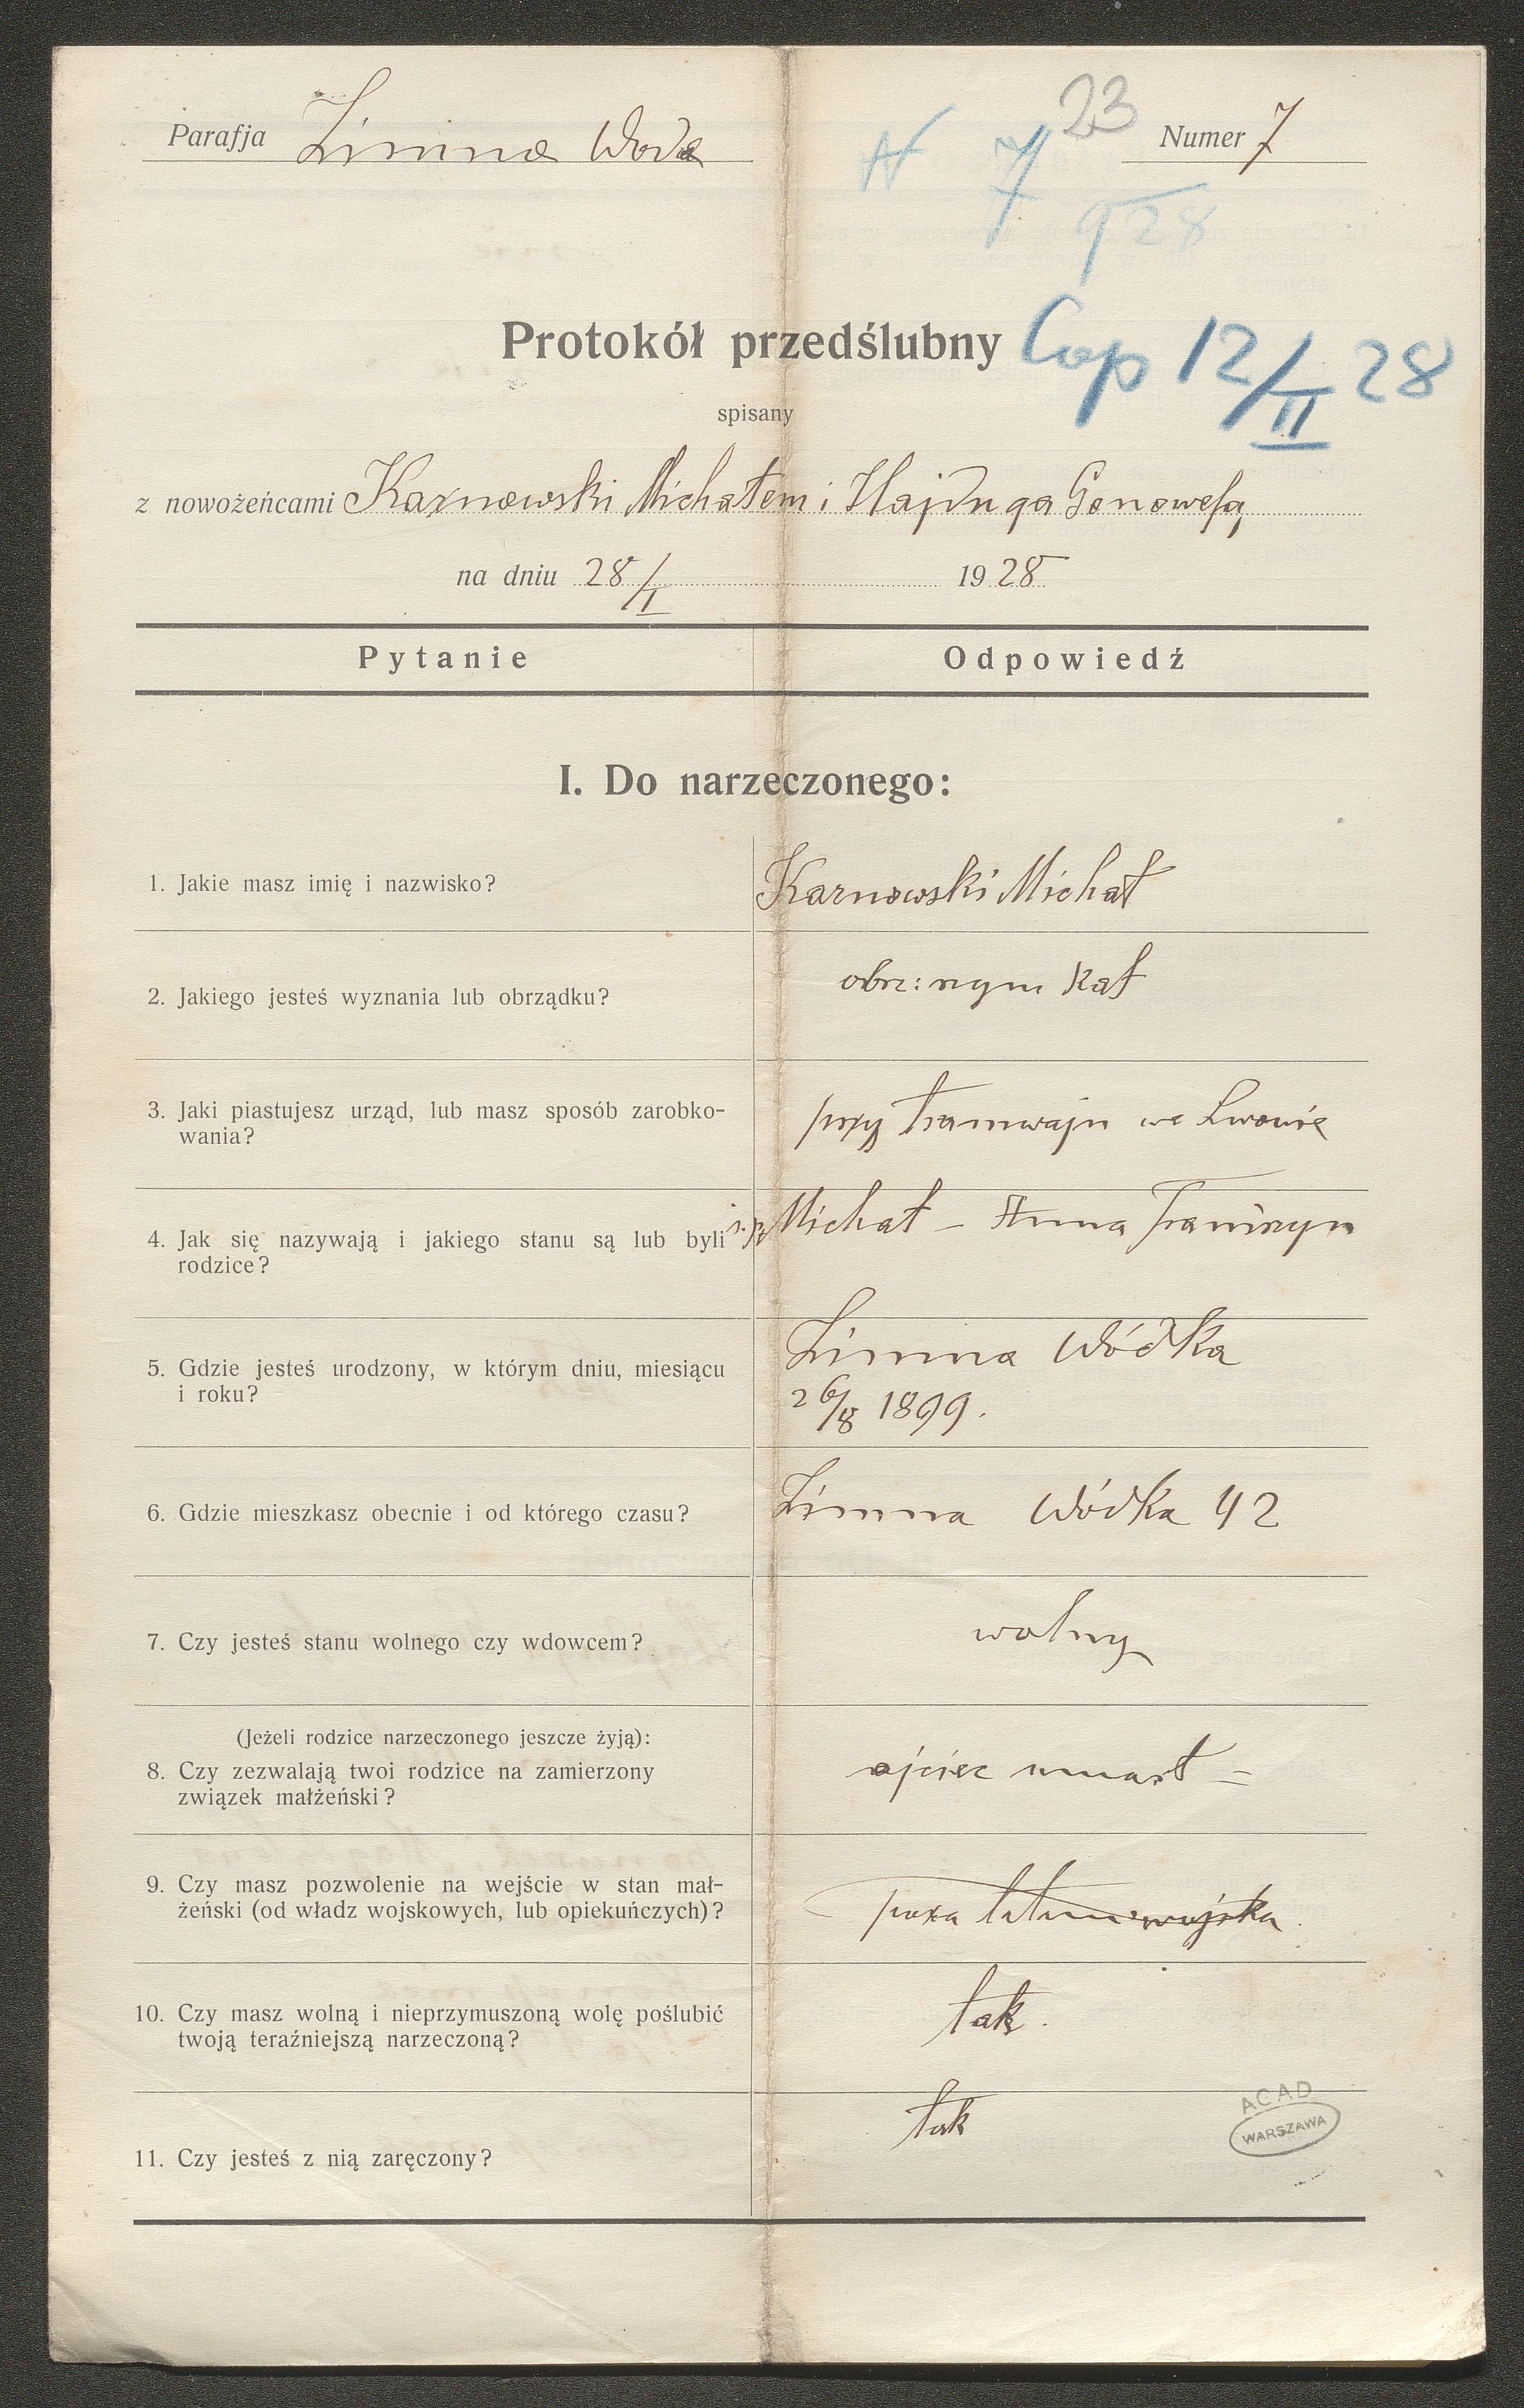 Parafja Zimna Woda
23
Numer 7
N 7
928
Protokół przedślubny Cop 12/II 28
spisany
z nowożeńcami Karnowski Michałem i Hajduga Genowefą
na dniu 28/I 1928
Pytanie Odpowiedź
I. Do narzeczonego:
1. Jakie masz imię i nazwisko? Karnowski Michał
2. Jakiego jesteś wyznania lub obrządku? obrz: rzym Kat
3. Jaki piastujesz urząd, lub masz sposób zarobko-
wania? przy tramwaju we Lwowie
4. Jak się nazywają i jakiego stanu są lub byli
rodzice? ś. p. Michał – Anna
5. Gdzie jesteś urodzony, w którym dniu, miesiącu
i roku?
Zimna Wódka
26/8 1899.
6. Gdzie mieszkasz obecnie i od którego czasu? Zimna Wódka 42
7. Czy jesteś stanu wolnego czy wdowcem? wolny
(Jeżeli rodzice narzeczonego jeszcze żyją):
8. Czy zezwalają twoi rodzice na zamierzony
związek małżeński? ojciec umarł =
9. Czy masz pozwolenie na wejście w stan mał-
żeński (od władz wojskowych, lub opiekuńczych)? poza
10. Czy masz wolną i nieprzymuszoną wolę poślubić
twoją teraźniejszą narzeczoną? tak.
11. Czy jesteś z nią zaręczony? tak
ACAD
WARSZAWA